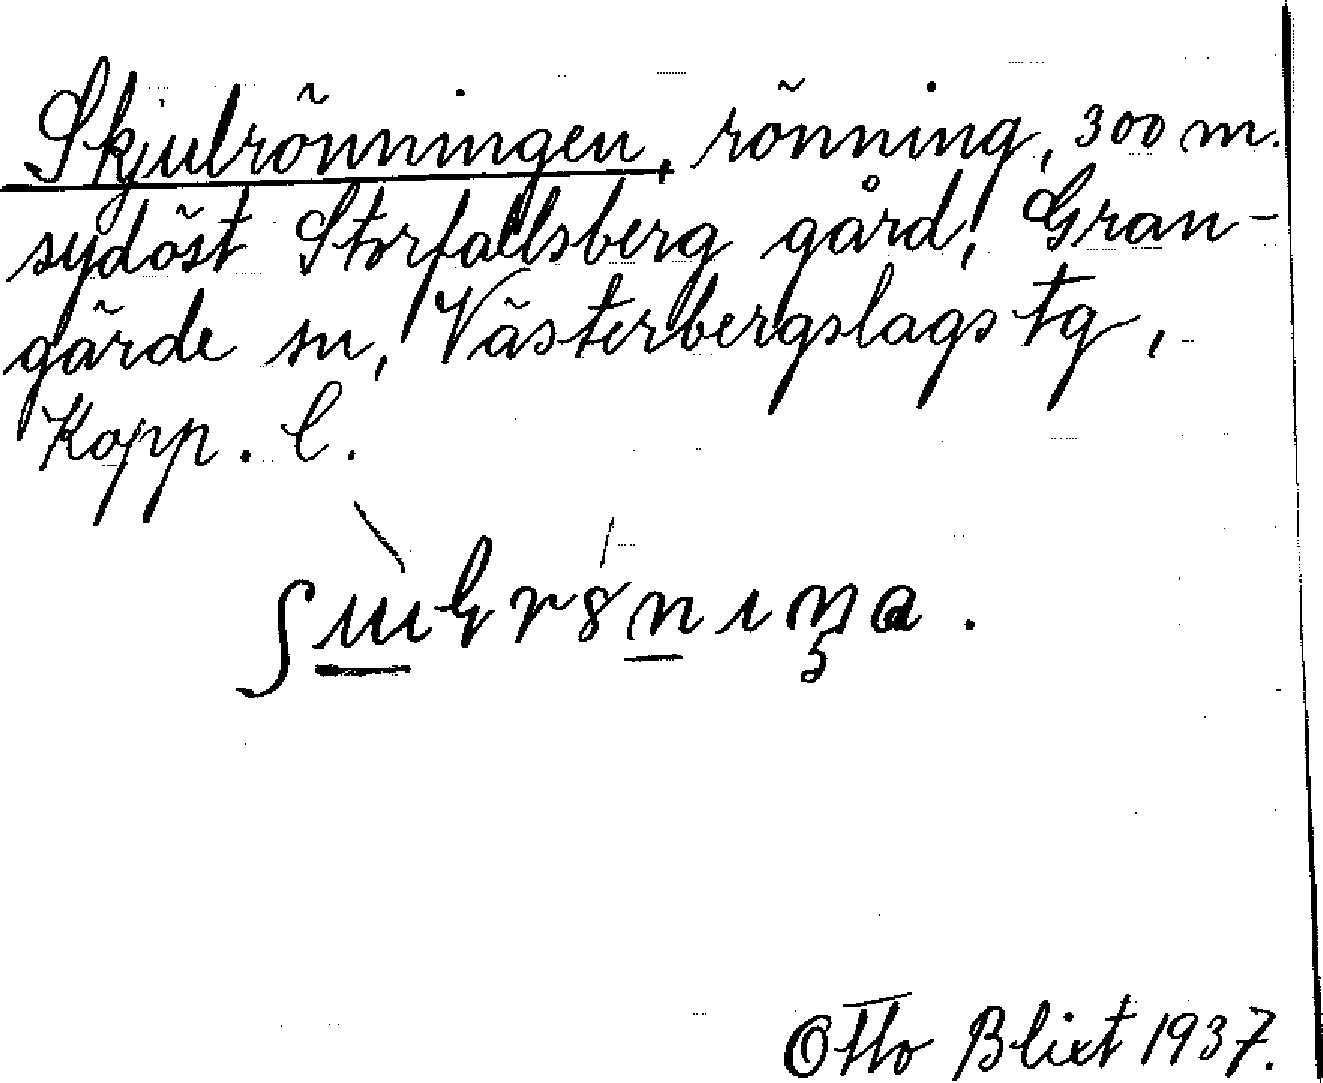 Skjulrönningen, rönning, 300 m.
sydöst Storfallsberg gård, Gran-
gärde sn, Västerbergslags tg,
Kopp. l.
Otto Blixt 1937.